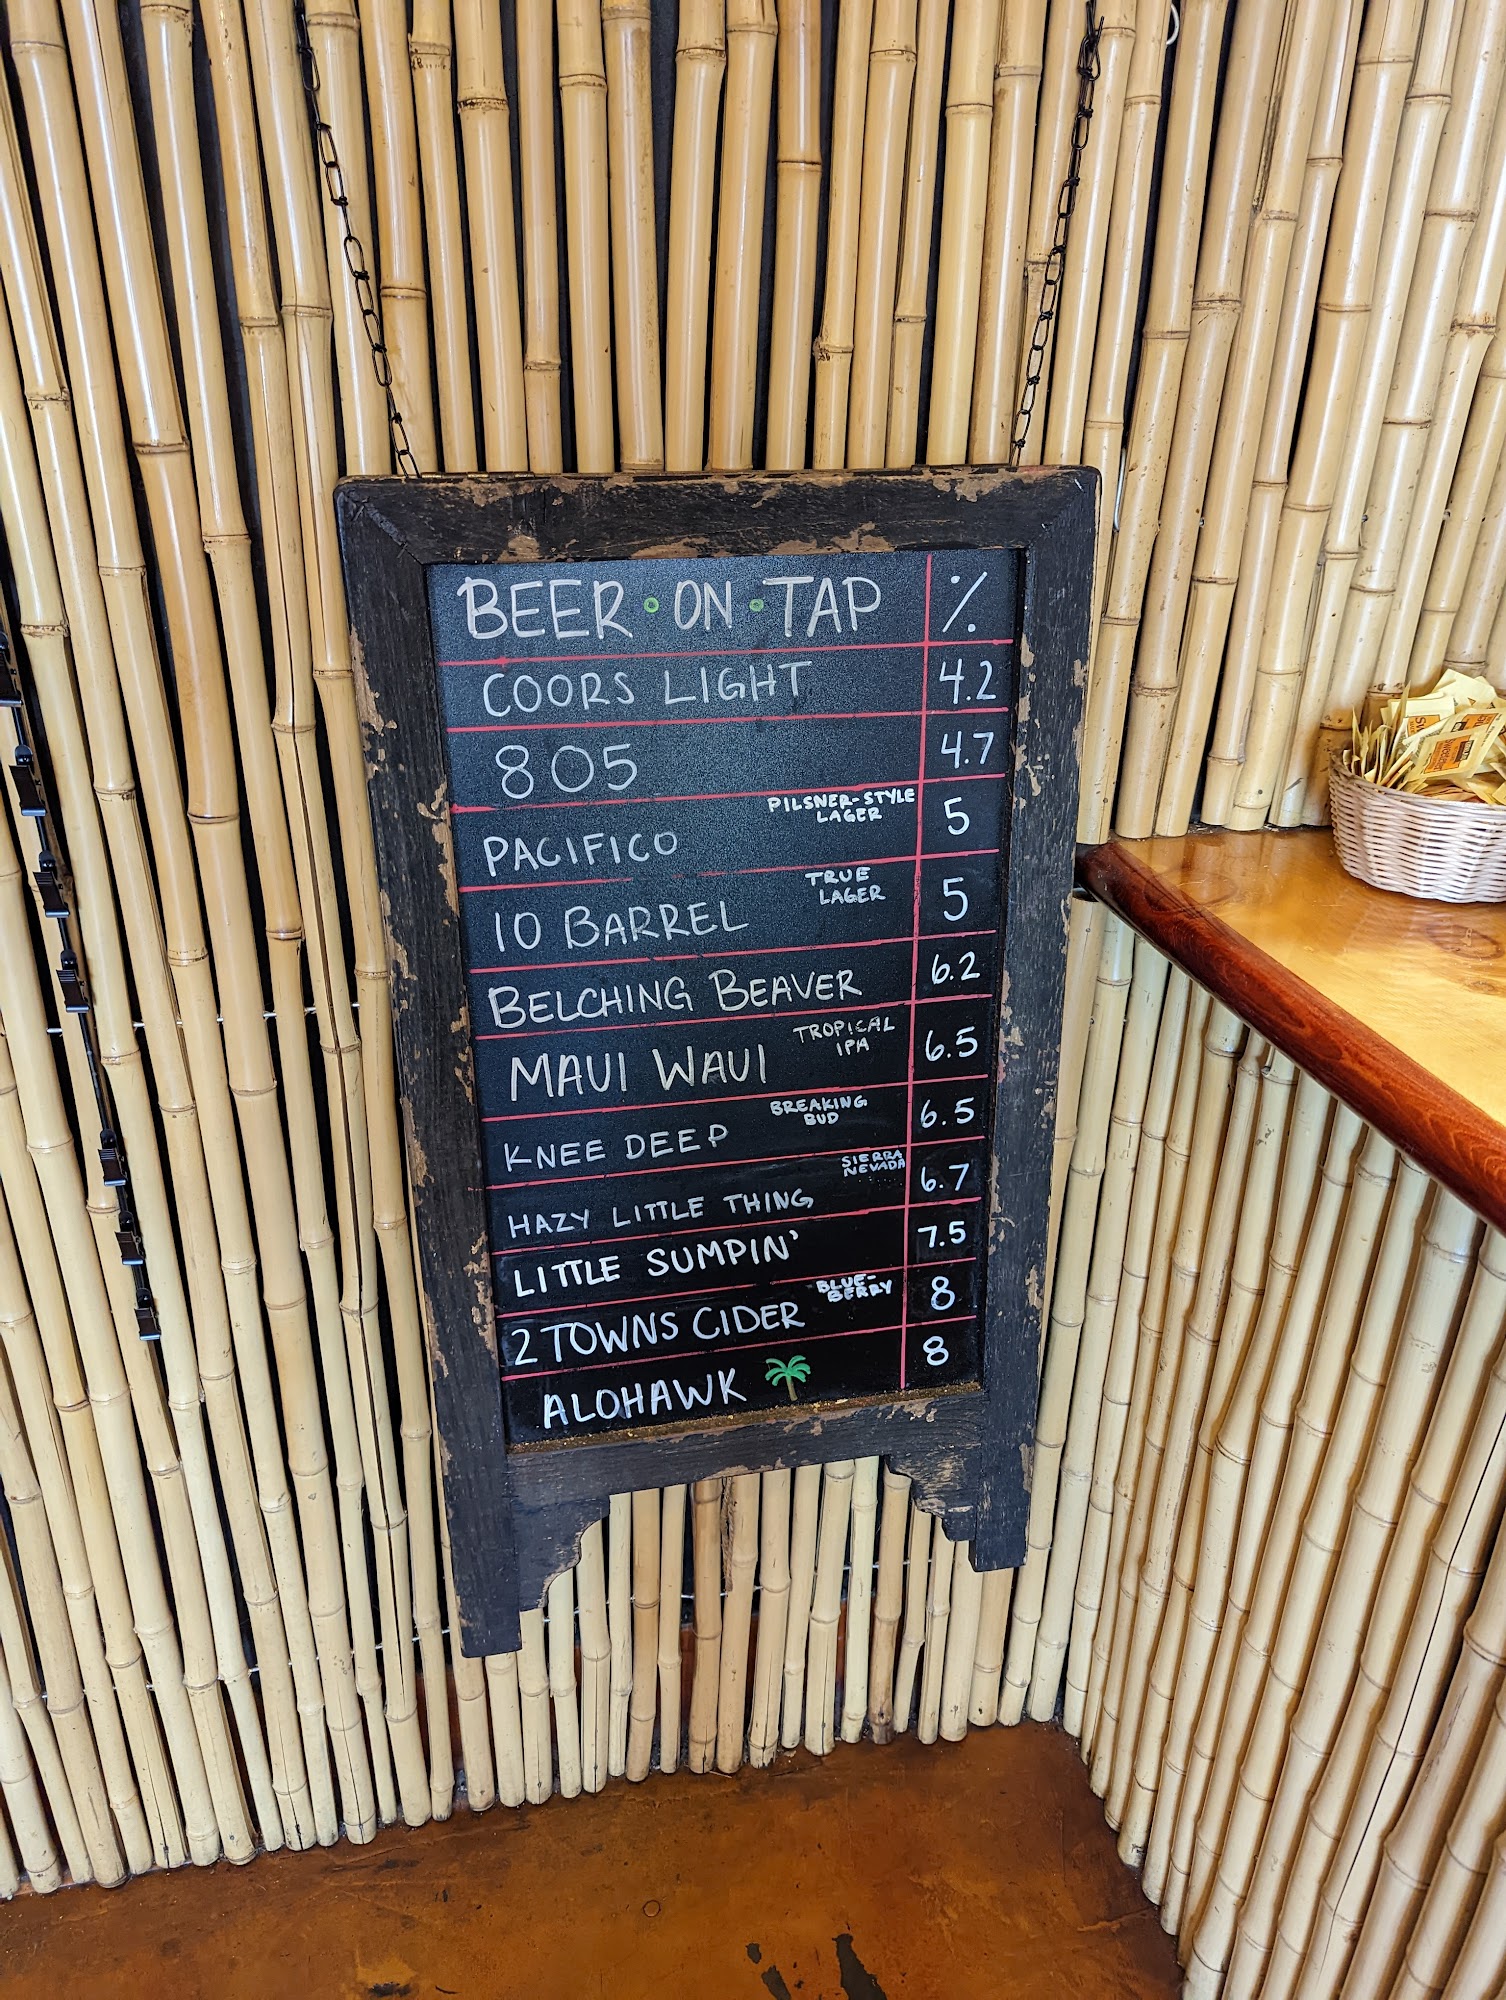 BEER • ON • TAP %
COORS LIGHT 4.2
805 4.7
PACIFICO PILSNER-STYLE LAGER 5
10 BARREL TRUE LAGER 5
BELCHING BEAVER 6.2
MAUI WAUI TROPICAL IPA 6.5
KNEE DEEP BREAKING BUD 6.5
HAZY LITTLE THING SIERRA NEVADA 6.7
LITTLE SUMPIN' 7.5
2 TOWNS CIDER BLUE-BERRY 8
ALOHAWK 8